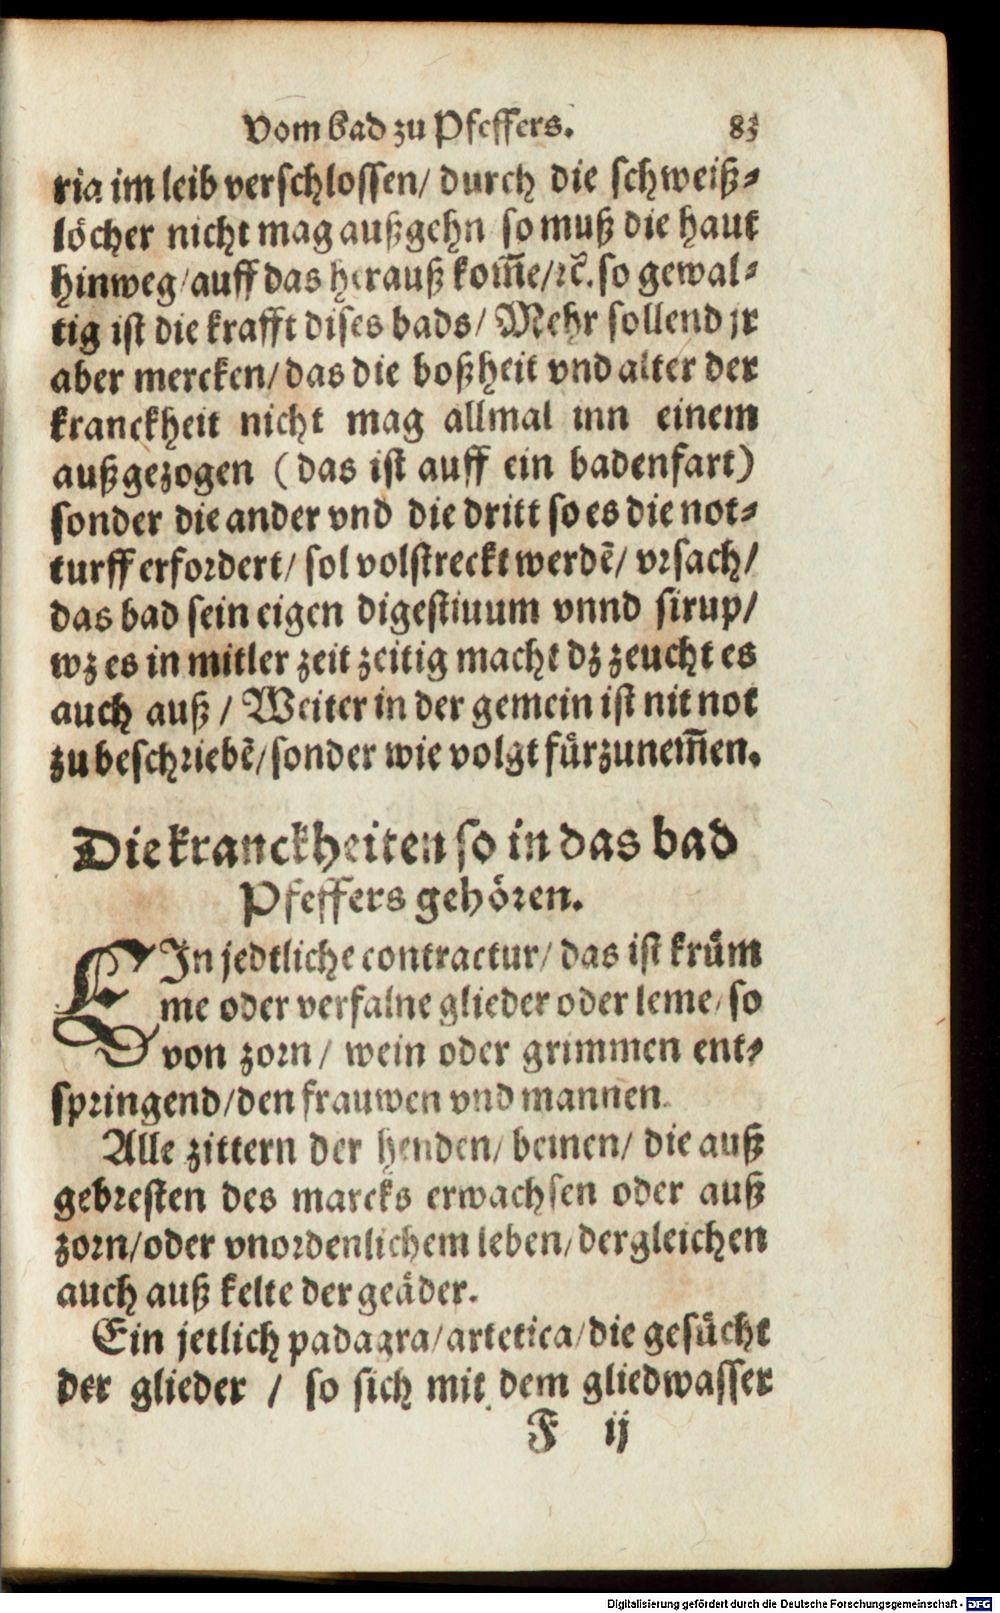 Vom bad zu Pfeffers. 83
ria im leib verschlossen/ durch die schweiß⸗
löcher nicht mag außgehn so muß die haut
hinweg/auff das herauß kom̃e/ꝛc̃. so gewal⸗
tig ist die krafft dises bads/ Mehr sollend jr
aber mercken/ das die boßheit vnd alter der
kranckheit nicht mag allmal inn einem
außgezogen (das ist auff ein badenfart)
sonder die ander vnd die dritt so es die not⸗
turff erfordert/ sol volstreckt werdē/ vrsach/
das bad sein eigen digestiuum vnnd sirup/
wz es in mitler zeit zeitig macht dz zeucht es
auch auß / Weiter in der gemein ist nit not
zu beschriebē/sonder wie volgt fürzunem̃en.
Die kranckheiten so in das bad
Pfeffers gehören.
EIn jedtliche contractur/ das ist krüm
me oder verfalne glieder oder leme/ so
von zorn/ wein oder grimmen ent⸗
springend/den frauwen vnd mannen.
Alle zittern der henden/ beinen/ die auß
gebresten des marcks erwachsen oder auß
zorn/oder vnordenlichem leben/ dergleichen
auch auß kelte der geäder.
Ein jetlich padagra/artetica/die gesücht
der glieder / so sich mit dem gliedwasser
F ij
Digitalisierung gefördert durch die Deutsche Forschungsgemeinschaft - DFG